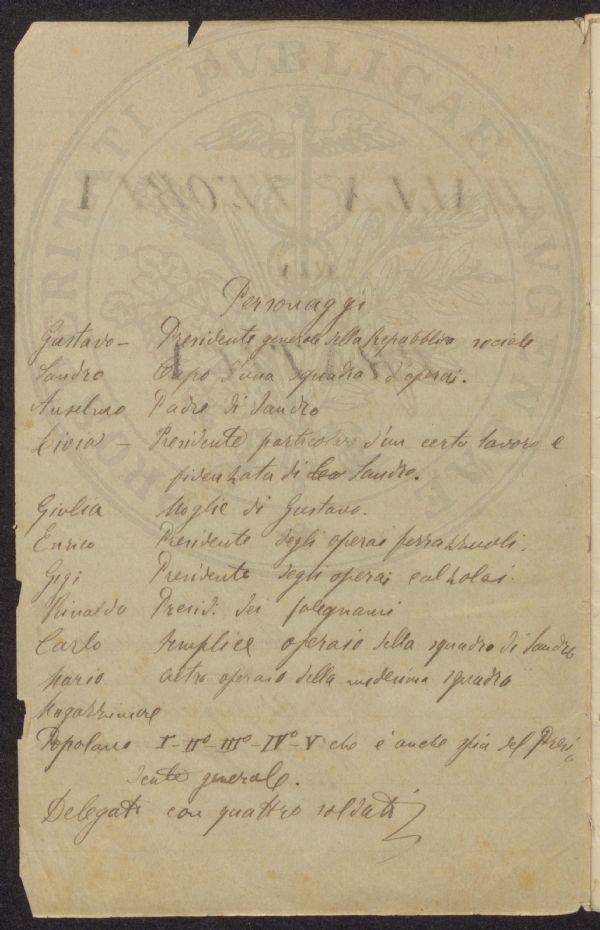 PROSPERITATI PVBLICAE AVGENDAE
Personaggi
Gustavo – Presidente generale della Repubblica sociale
Sandro Capo d'una squadra d'operai.
Anselmo Padre di Sandro
Livia – Presidente particolare d'un certo lavoro e
fidenzata di Sandro.
Giulia Moglie di Gustavo.
Enrico Presidente degli operai ferrazzuoli.
Gigi Presidente degli operai calzolai.
Rinaldo Presid. dei falegnami
Carlo semplice operaio della squadra di Sandro
Mario altro operaio della medesima squadra
Magazziniere
Popolano I-IIº-IIIº-IVº-V che è anche spia del Presi
dente generale.
Delegati con quattro soldati